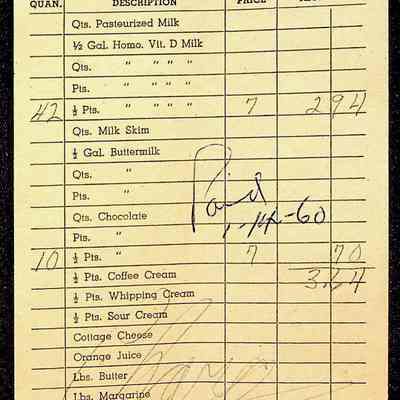 QUAN. DESCRIPTION PRICE
Qts. Pasteurized Milk
½ Gal. Homo. Vit. D Milk
Qts. " " " "
Pts. " " " "
42 ½ Pts. " " " " 7 294
Qts. Milk Skim
½ Gal. Buttermilk
Qts. "
Pts. "
Paid
1-14-60
Qts. Chocolate
Pts. "
10 ½ Pts. " 7 70
½ Pts. Coffee Cream 3.64
½ Pts. Whipping Cream
½ Pts. Sour Cream
Cottage Cheese
Orange Juice
Lbs. Butter
Lbs. Margarine